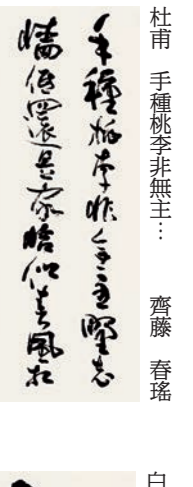 杜甫　手種桃李非無主…　齊藤　春瑤
手種桃李非無主野老
墻低還是家恰似春風相
白